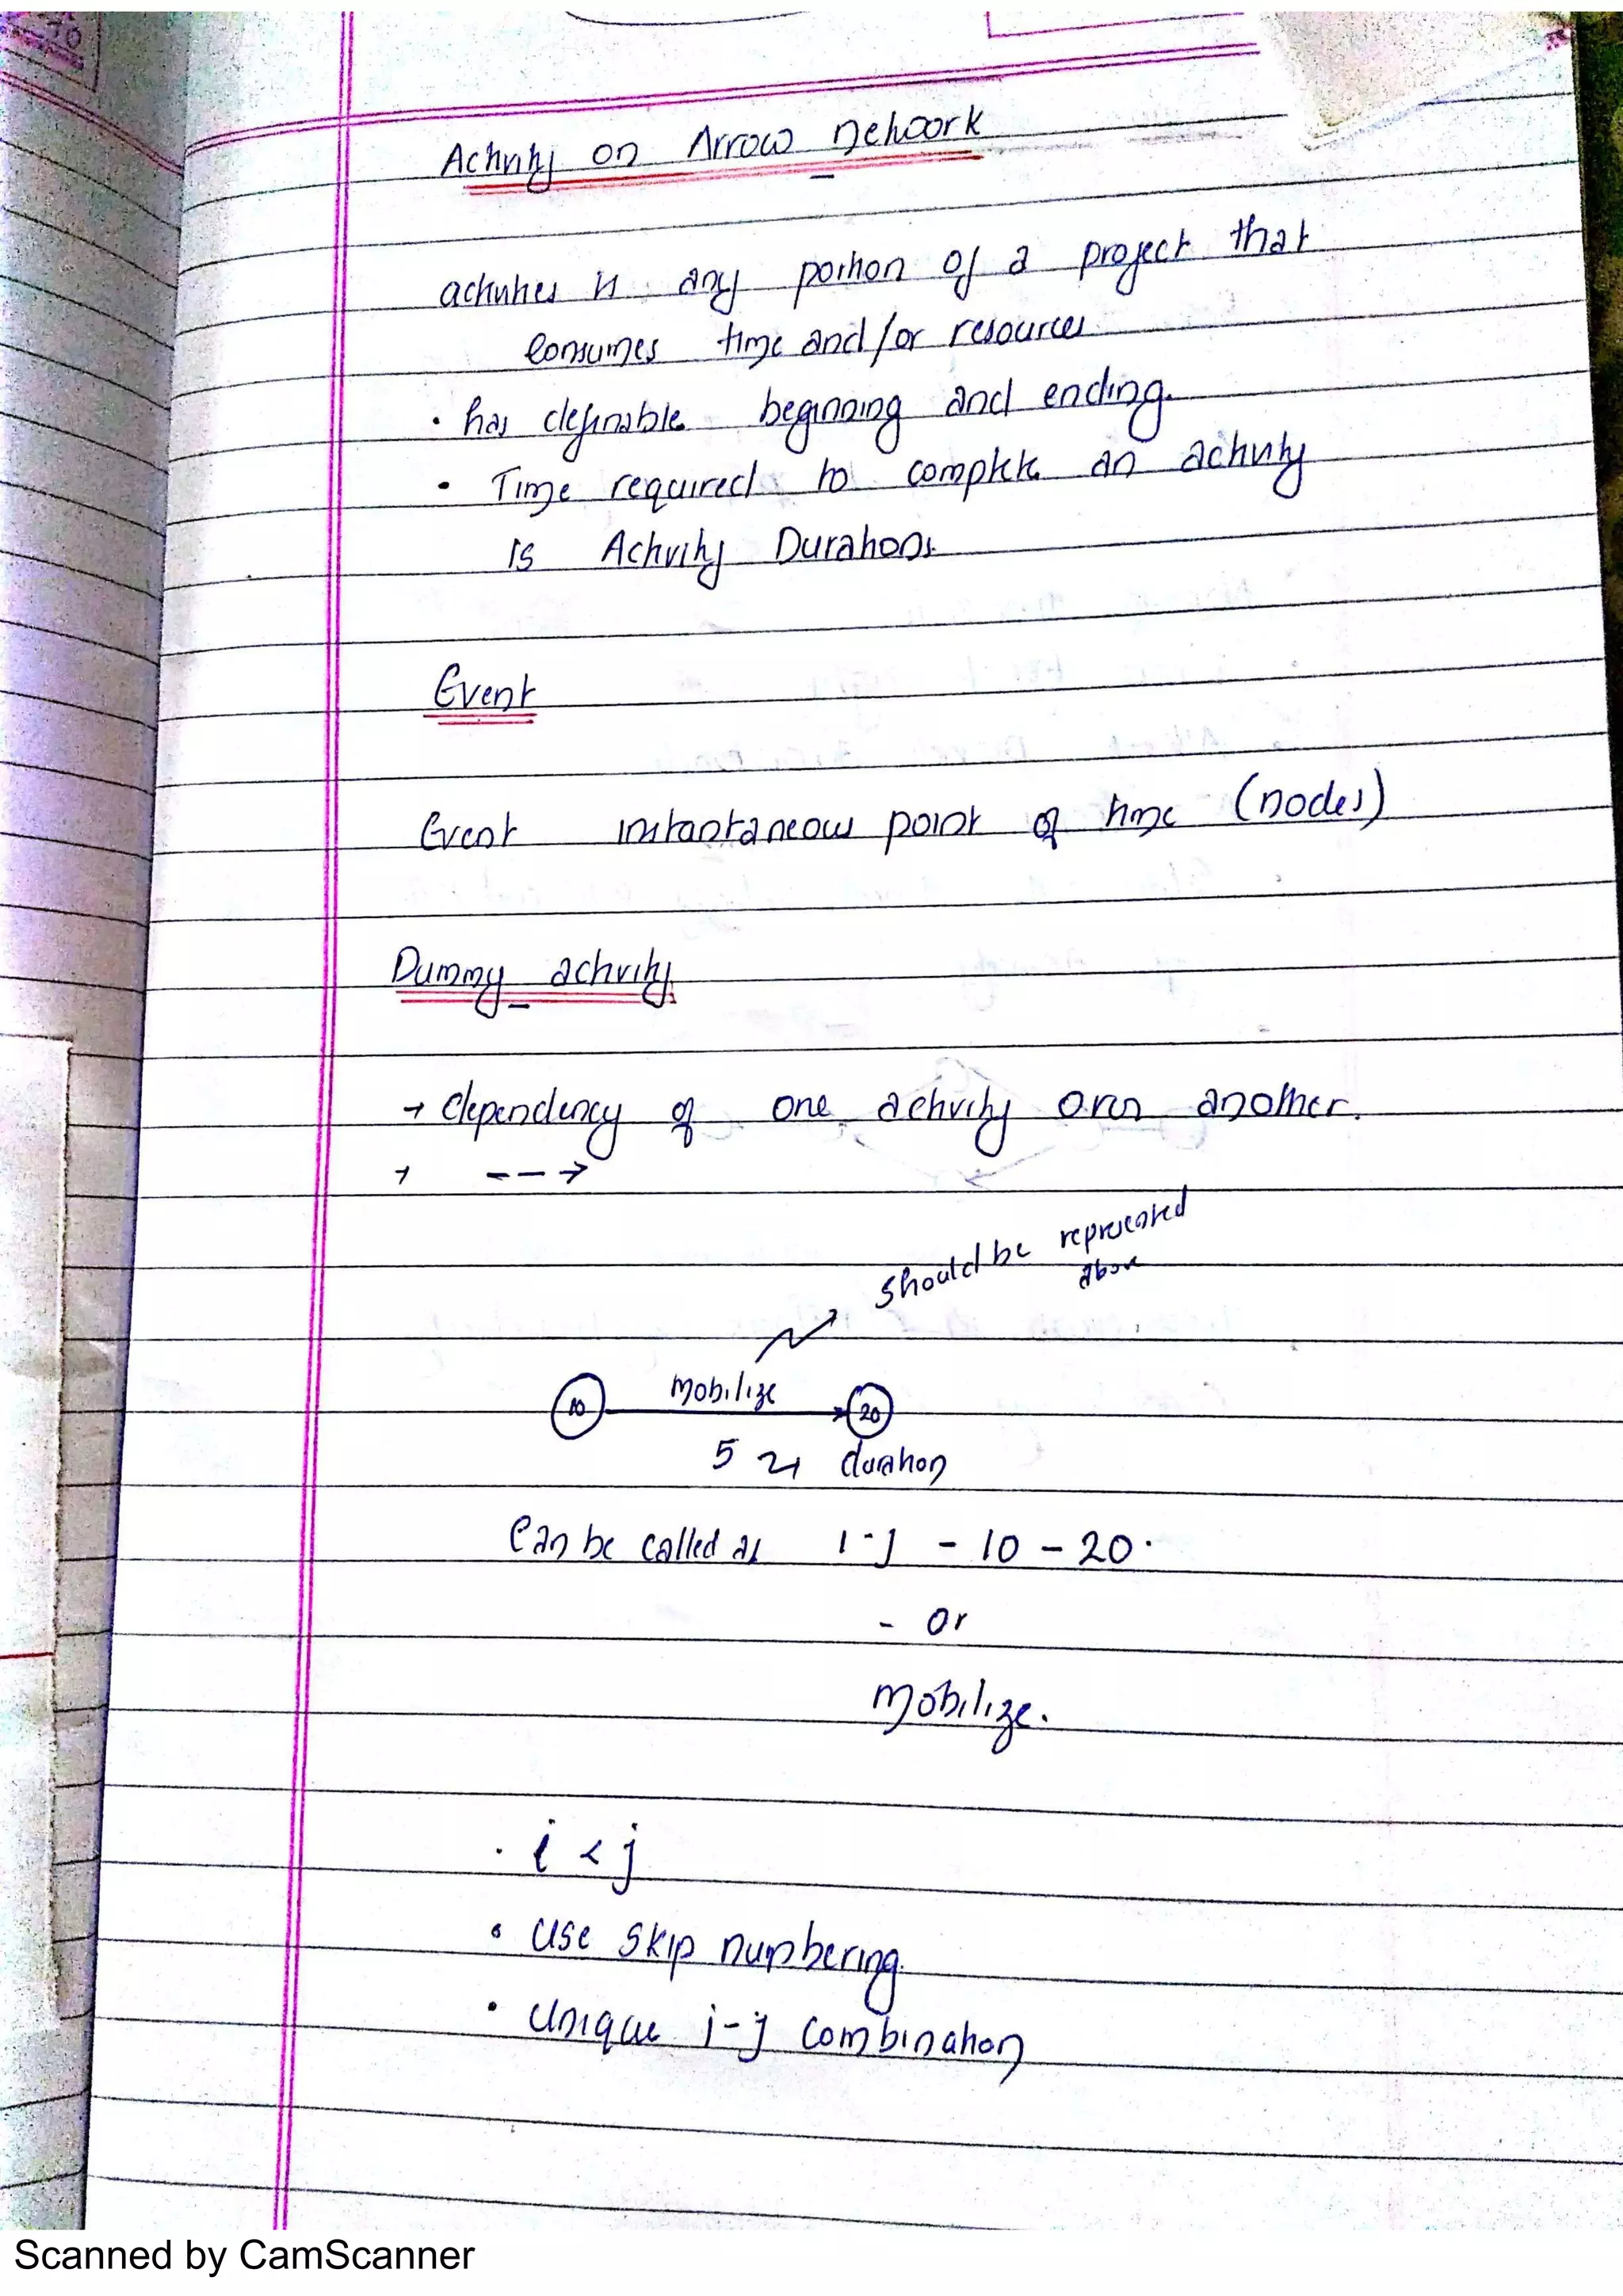 Activity on Arrow network
activities is any portion of a project that
consumes time and/or resources
• has definable beginning and ending.
• Time required to complete an activity
is Activity Duration.
Event
Event instantaneous point of time (nodes)
Dummy activity
→ dependency of one activity over another.
→ - - →
should be represented
above
10 mobilize 20
5 → duration
Can be called as i-j - 10 - 20.
- or
mobilize.
• i < j
• use skip numbering.
• Unique i-j combination
Scanned by CamScanner